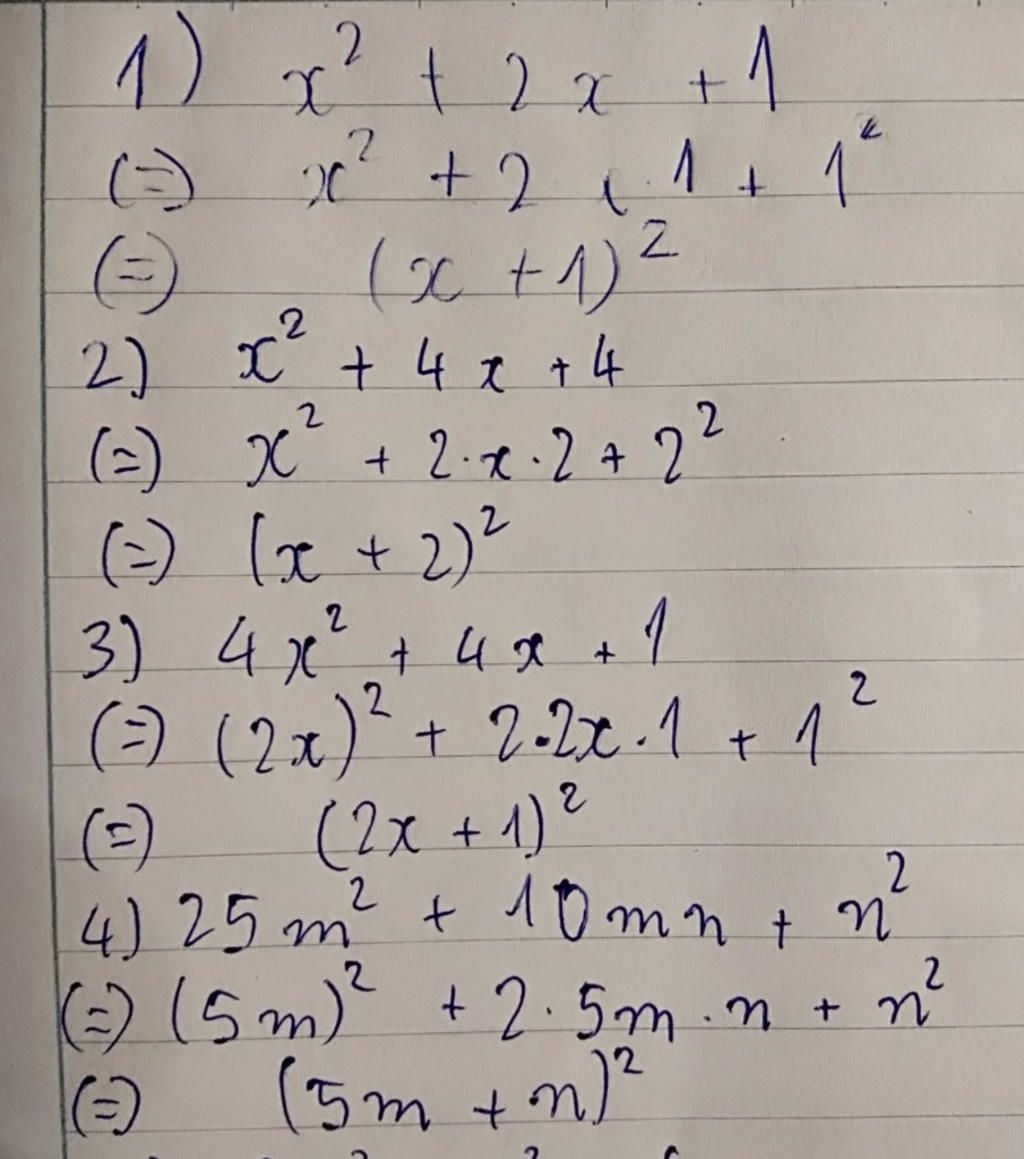 1) x² + 2x + 1
(=) x² + 2 . 1 + 1²
(=) (x + 1)²
2) x² + 4x + 4
(=) x² + 2·x·2 + 2²
(=) (x + 2)²
3) 4x² + 4x + 1
(=) (2x)² + 2·2x·1 + 1²
(=) (2x + 1)²
4) 25m² + 10mn + n²
(=) (5m)² + 2·5m·n + n²
(=) (5m + n)²